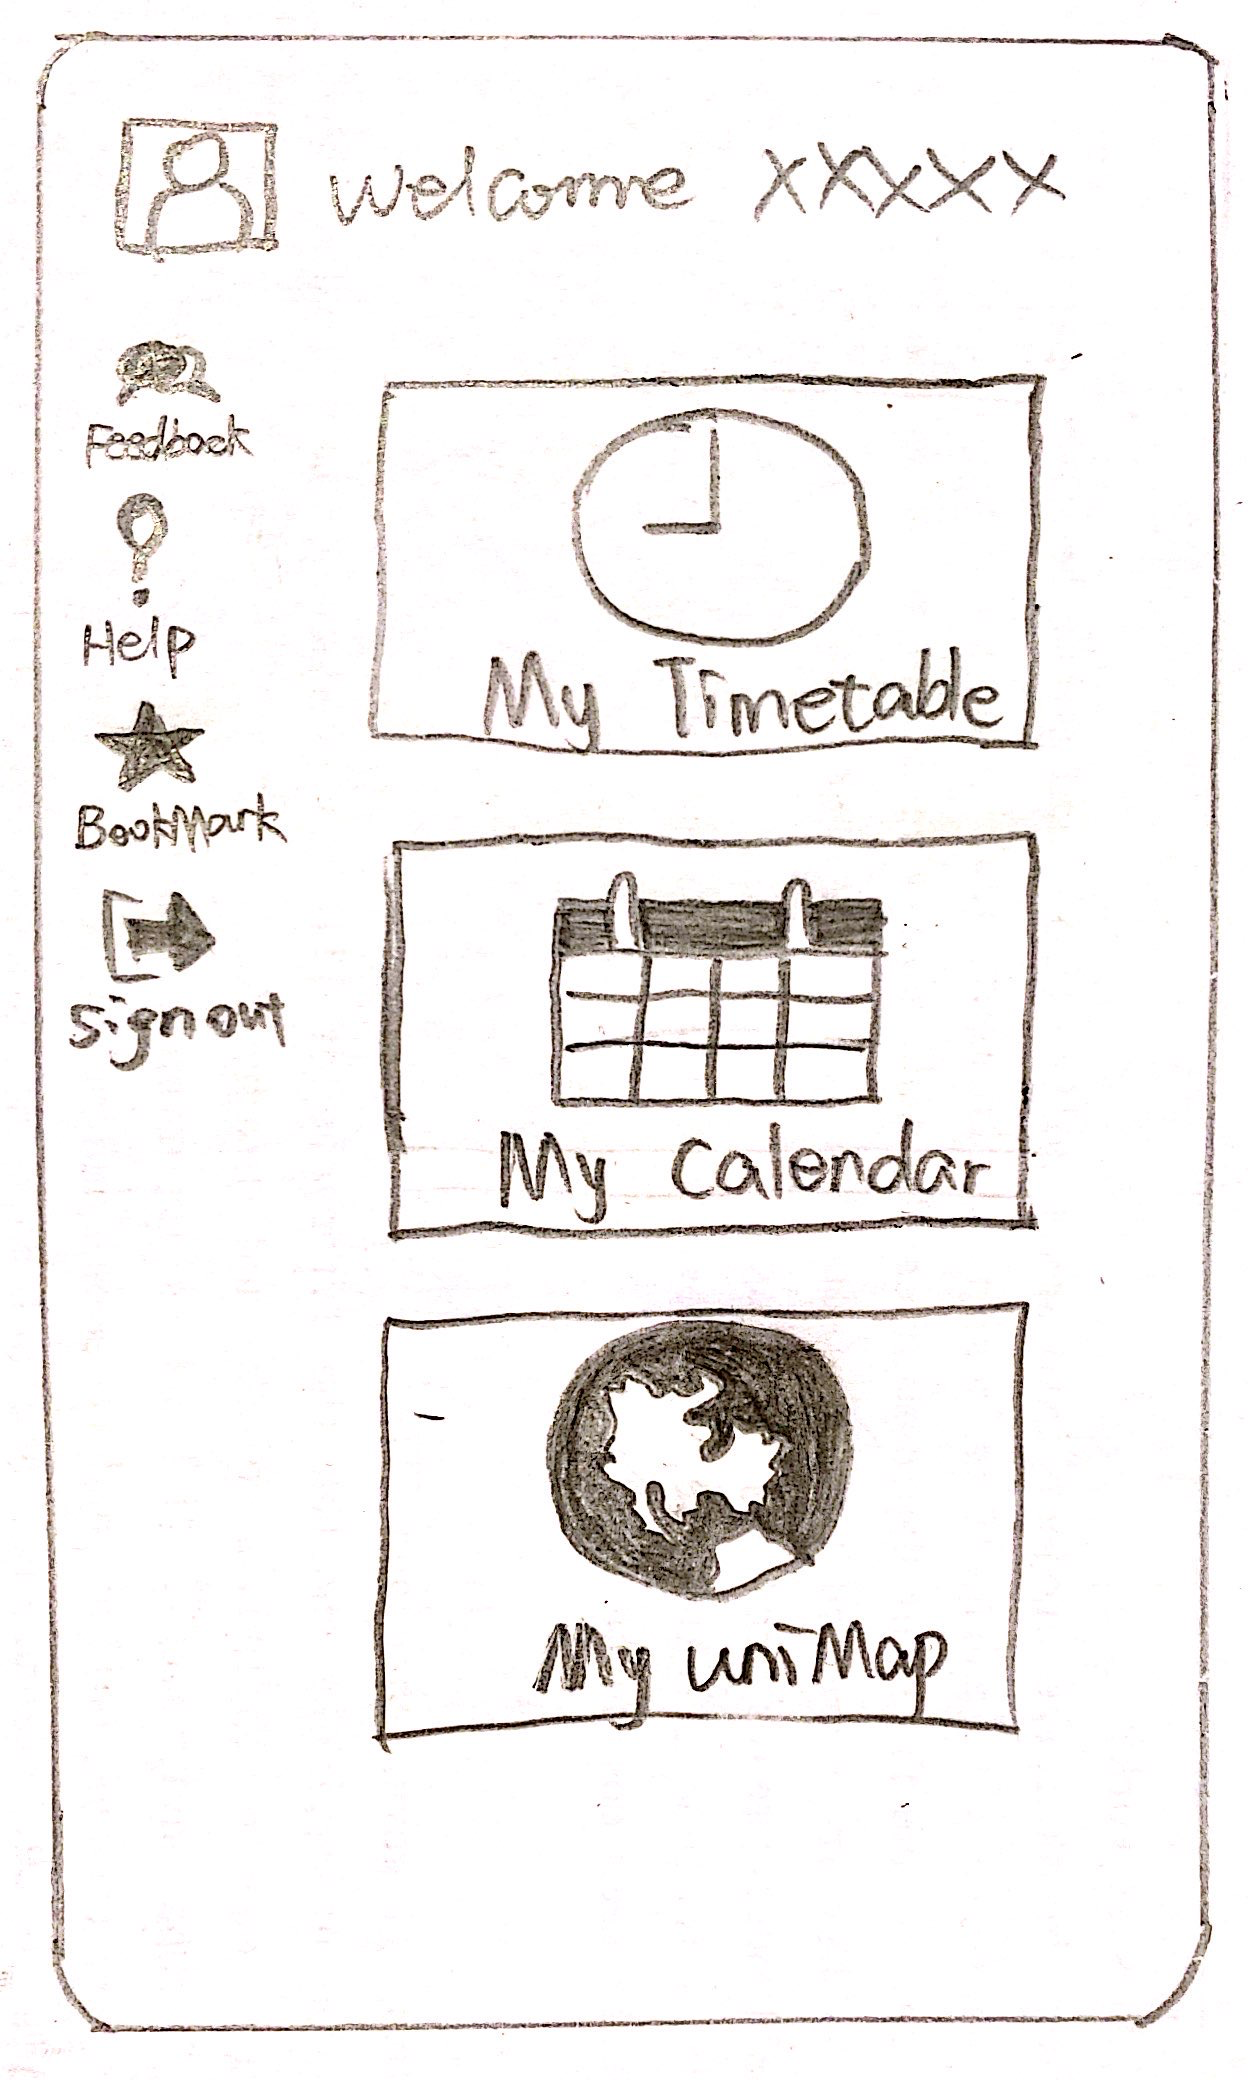 Welcome XXXXX
Feedback
Help
BookMark
Sign out
My Timetable
My Calendar
My uniMap